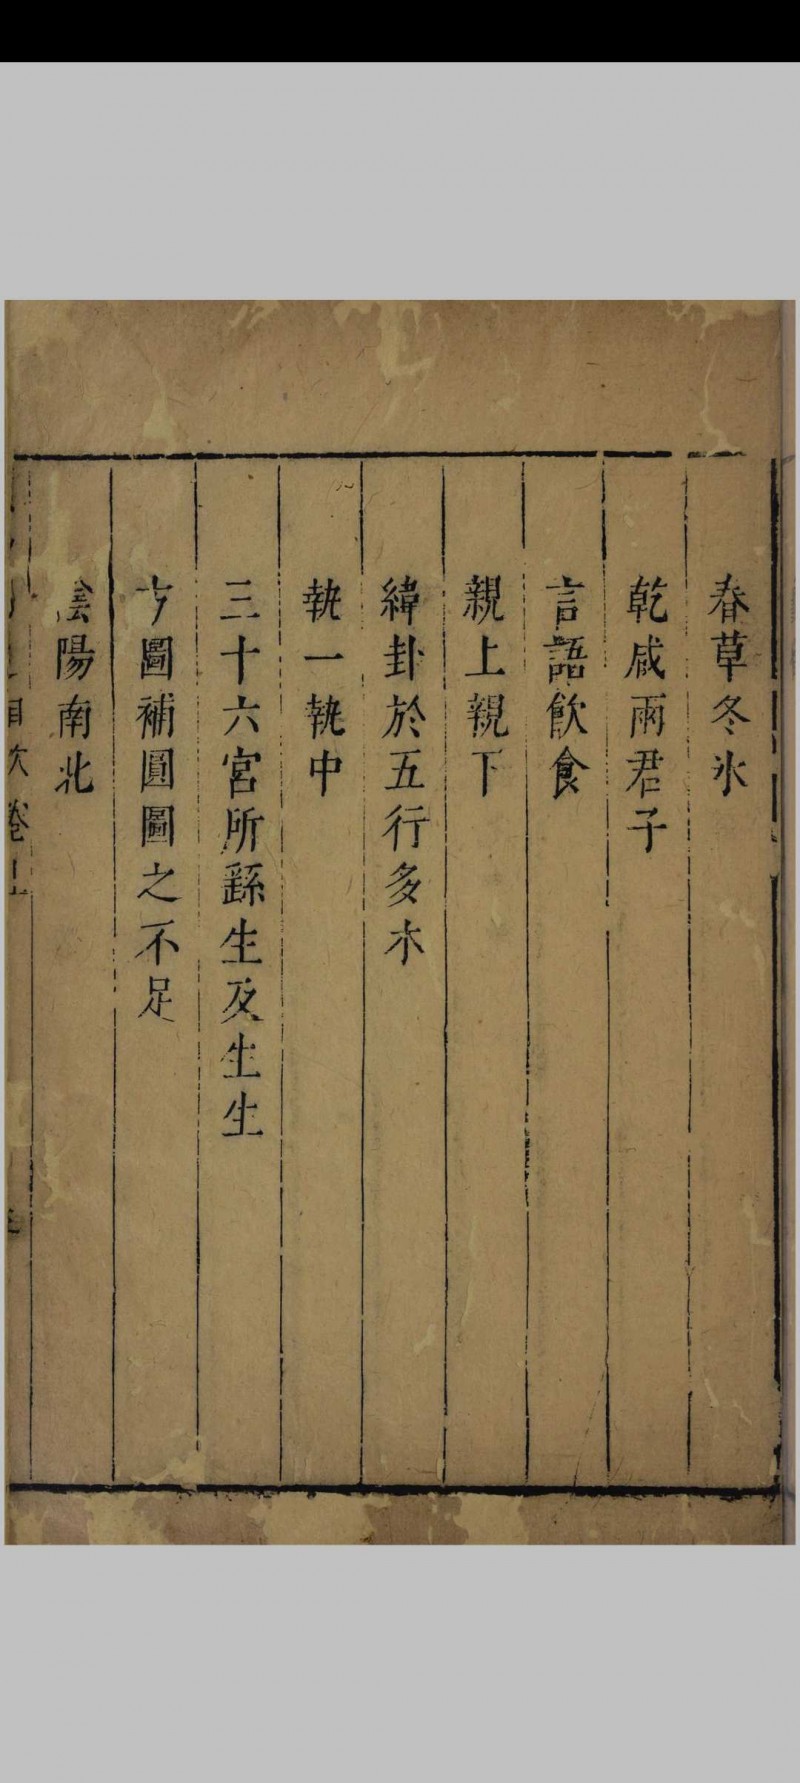 春草冬氷
乾咸兩君子
言語飲食
親上親下
緯卦於五行多木
執一執中
三十六宮所繇生及生生
方圖補圓圖之不足
陰陽南北
目次 卷上